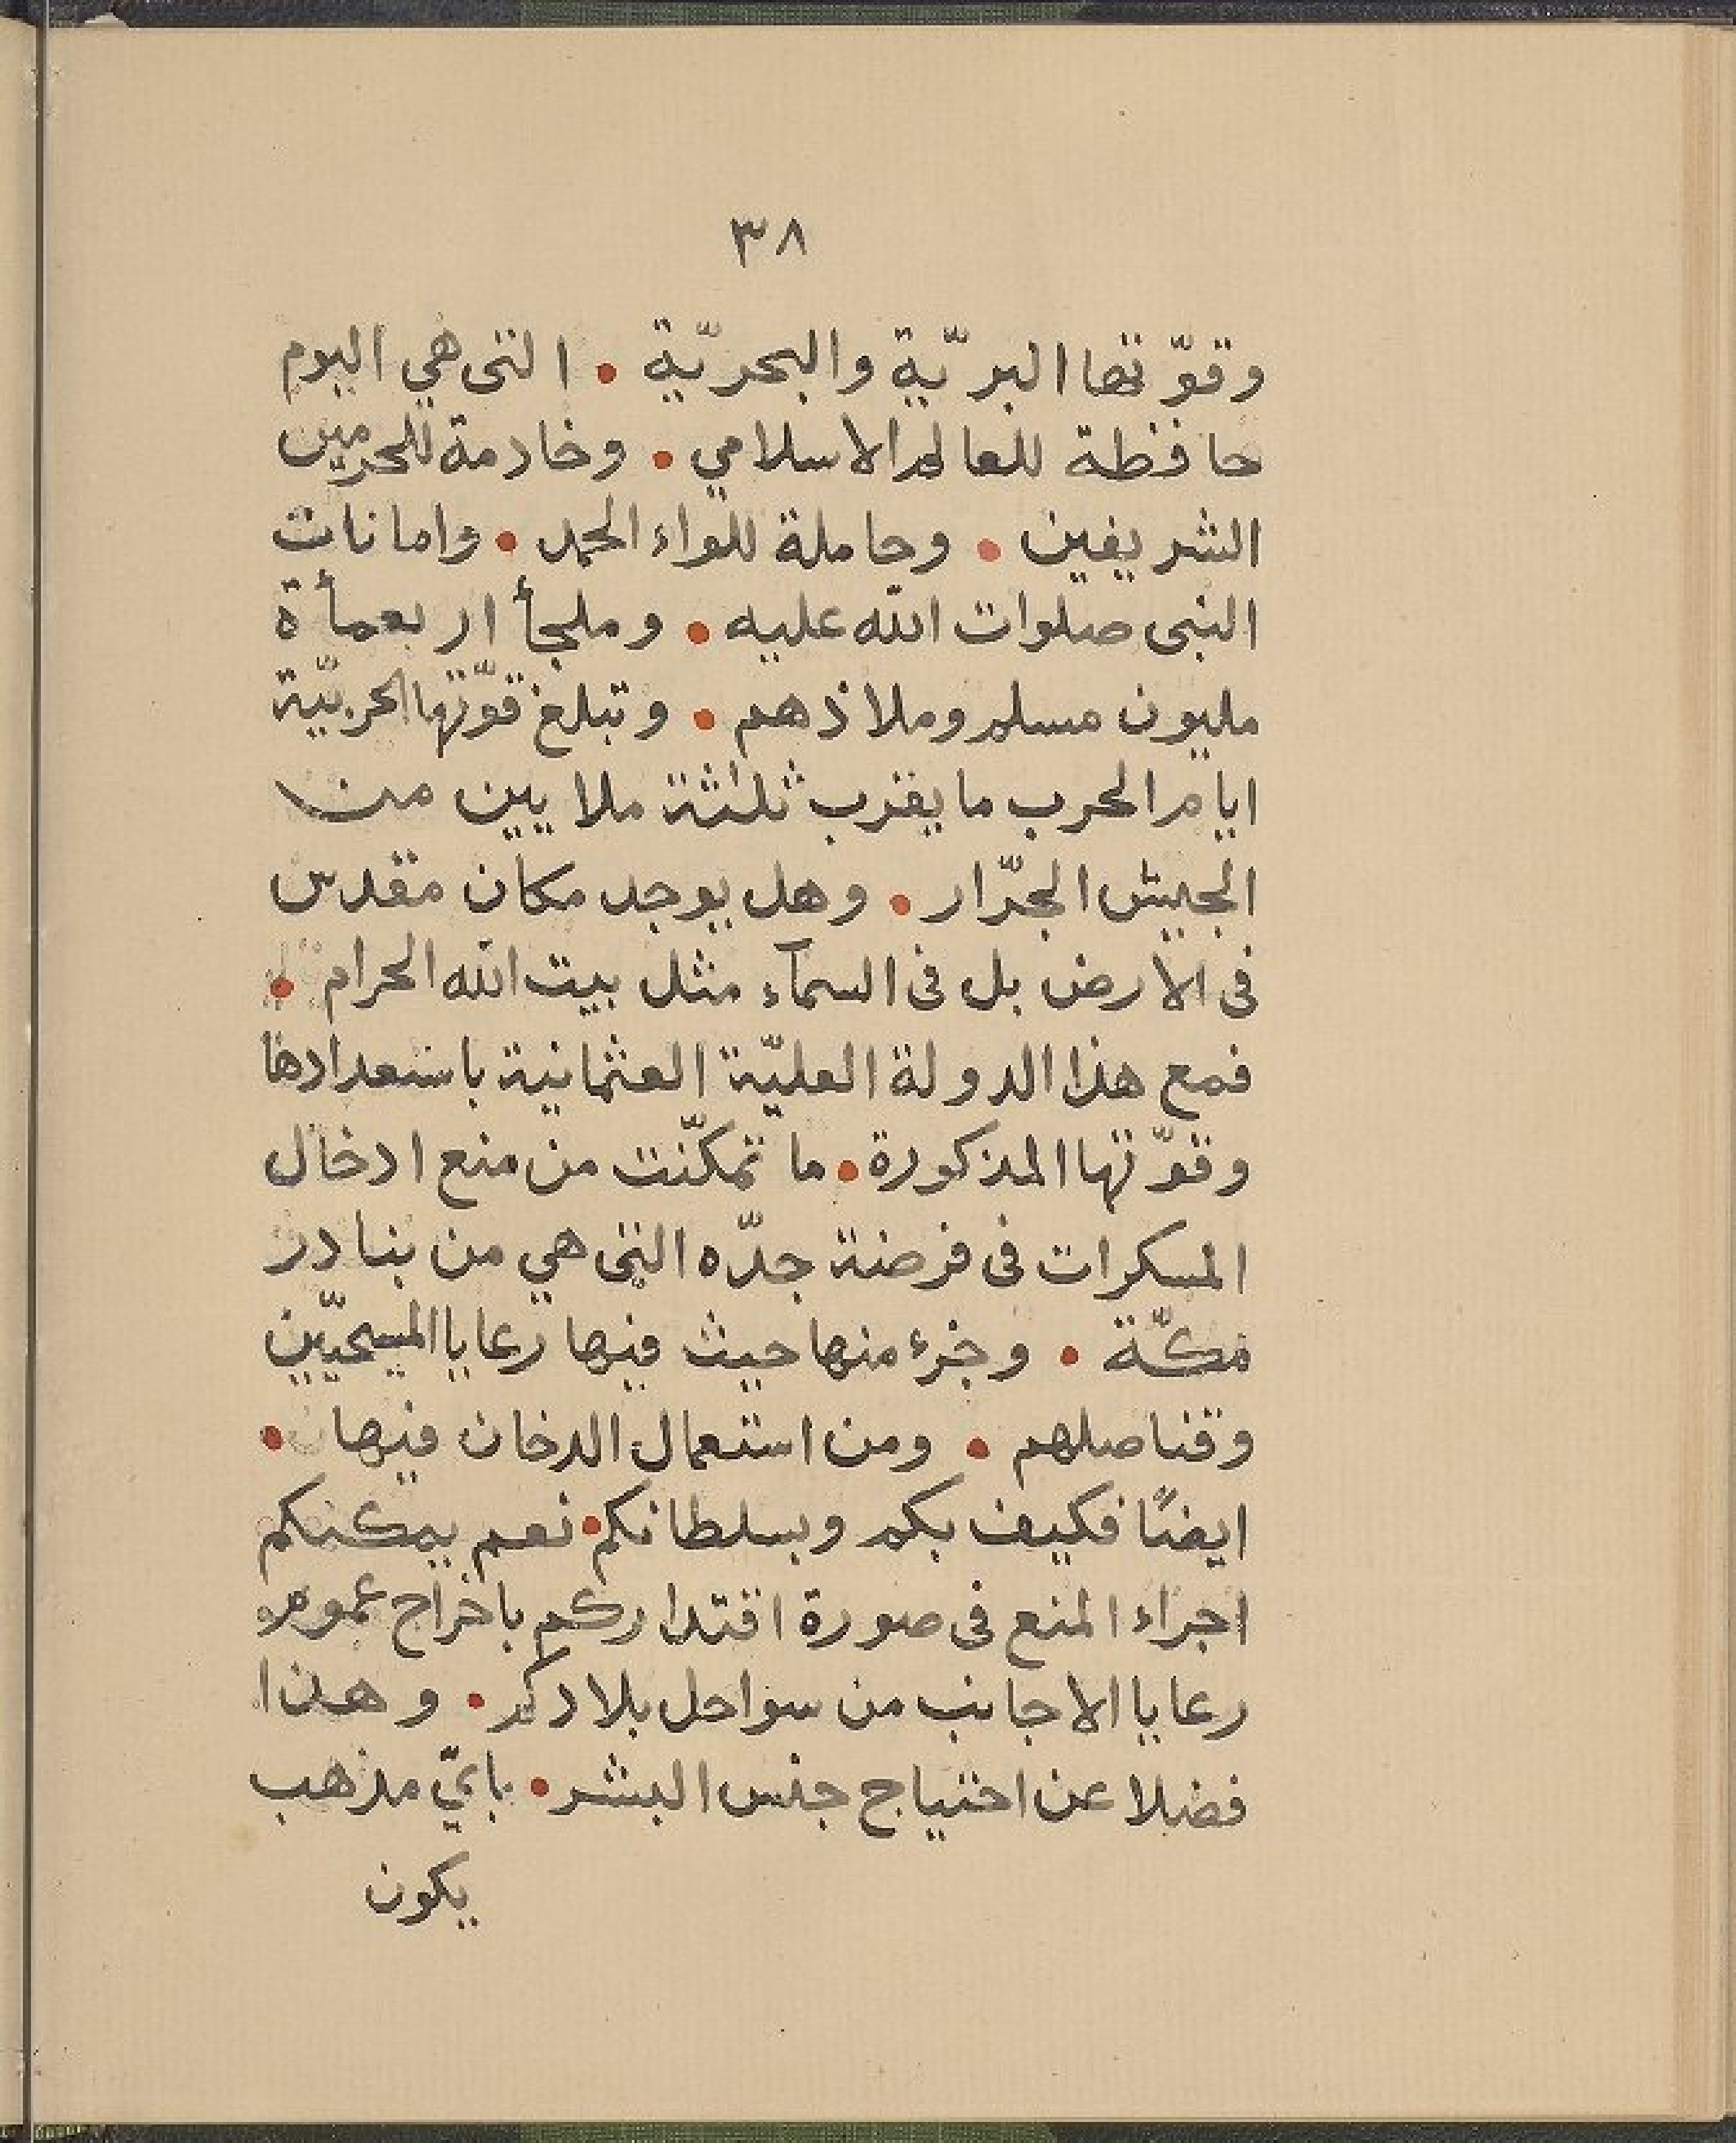 ٣٨
وقوّتها البريّة والبحريّة • التى هي اليوم
حافظة للعالم الاسلامي • وخادمة للحرمين
الشريفين • وحاملة للواء الحمد • وامانات
النبى صلوات الله عليه • وملجأ اربعمأة
مليون مسلم وملاذهم • وتبلغ قوّتها الحربيّة
ايام الحرب ما يقرب ثلثة ملايين من
الجيش الجرّار • وهل يوجد مكان مقدس
فى الارض بل فى السمآء مثل بيت الله الحرام •
فمع هذا الدولة العليّة العثمانية باستعدادها
وقوّتها المذكورة • ما تمكّنت من منع ادخال
المسكرات فى فرضة جدّه التى هي من بنادر
مكّة • وجزء منها حيث فيها رعايا المسيحيّين
وقناصلهم • ومن استعمال الدخان فيها •
ايضًا فكيف بكم وبسلطانكم • نعم يمكنكم
اجراء المنع فى صورة اقتداركم باخراج عموم
رعايا الاجانب من سواحل بلادكم • وهذا
فضلا عن احتياج جنس البشر • بايّ مذهب
يكون